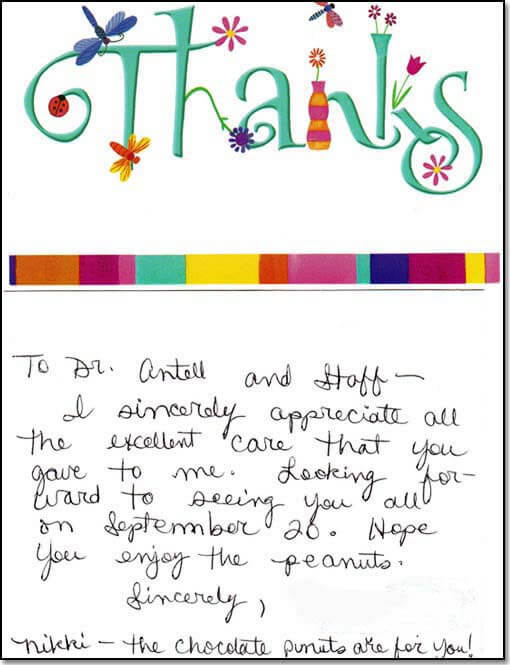 Thanks
To Dr. Antell and Staff —
I sincerely appreciate all
the excellent care that you
gave to me. Looking for-
ward to seeing you all
on September 20. Hope
you enjoy the peanuts.
Sincerely,
Nikki — the chocolate punuts are for you!